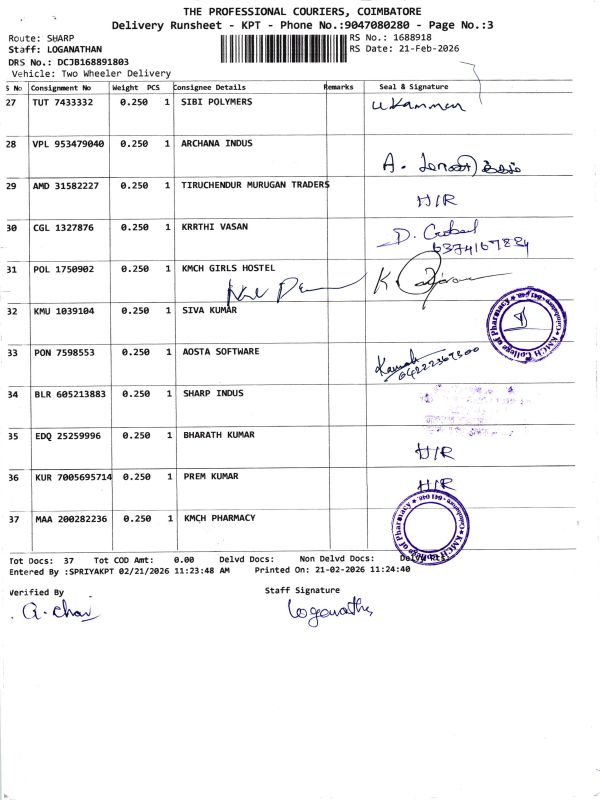 THE PROFESSIONAL COURIERS, COIMBATORE
Delivery Runsheet - KPT - Phone No.:9047080280 - Page No.:3
Route: SHARP
RS No.: 1688918
Staff: LOGANATHAN
RS Date: 21-Feb-2026
DRS No.: DCJB168891803
Vehicle: Two Wheeler Delivery
S No Consignment No Weight PCS Consignee Details Remarks Seal & Signature
27 TUT 7433332 0.250 1 SIBI POLYMERS
28 VPL 953479040 0.250 1 ARCHANA INDUS
A.
29 AMD 31582227 0.250 1 TIRUCHENDUR MURUGAN TRADERS
H/R
30 CGL 1327876 0.250 1 KRRTHI VASAN
D.
31 POL 1750902 0.250 1 KMCH GIRLS HOSTEL
K
32 KMU 1039104 0.250 1 SIVA KUMAR
KMCH College of Pharmacy
33 PON 7598553 0.250 1 AOSTA SOFTWARE
34 BLR 605213883 0.250 1 SHARP INDUS
35 EDQ 25259996 0.250 1 BHARATH KUMAR
H/R
36 KUR 7005695714 0.250 1 PREM KUMAR
H/R
37 MAA 200282236 0.250 1 KMCH PHARMACY
KMCH College of Pharmacy
Tot Docs: 37 Tot COD Amt: 0.00 Delvd Docs: Non Delvd Docs:
Entered By :SPRIYAKPT 02/21/2026 11:23:48 AM Printed On: 21-02-2026 11:24:40
Verified By
Staff Signature
Loganathn